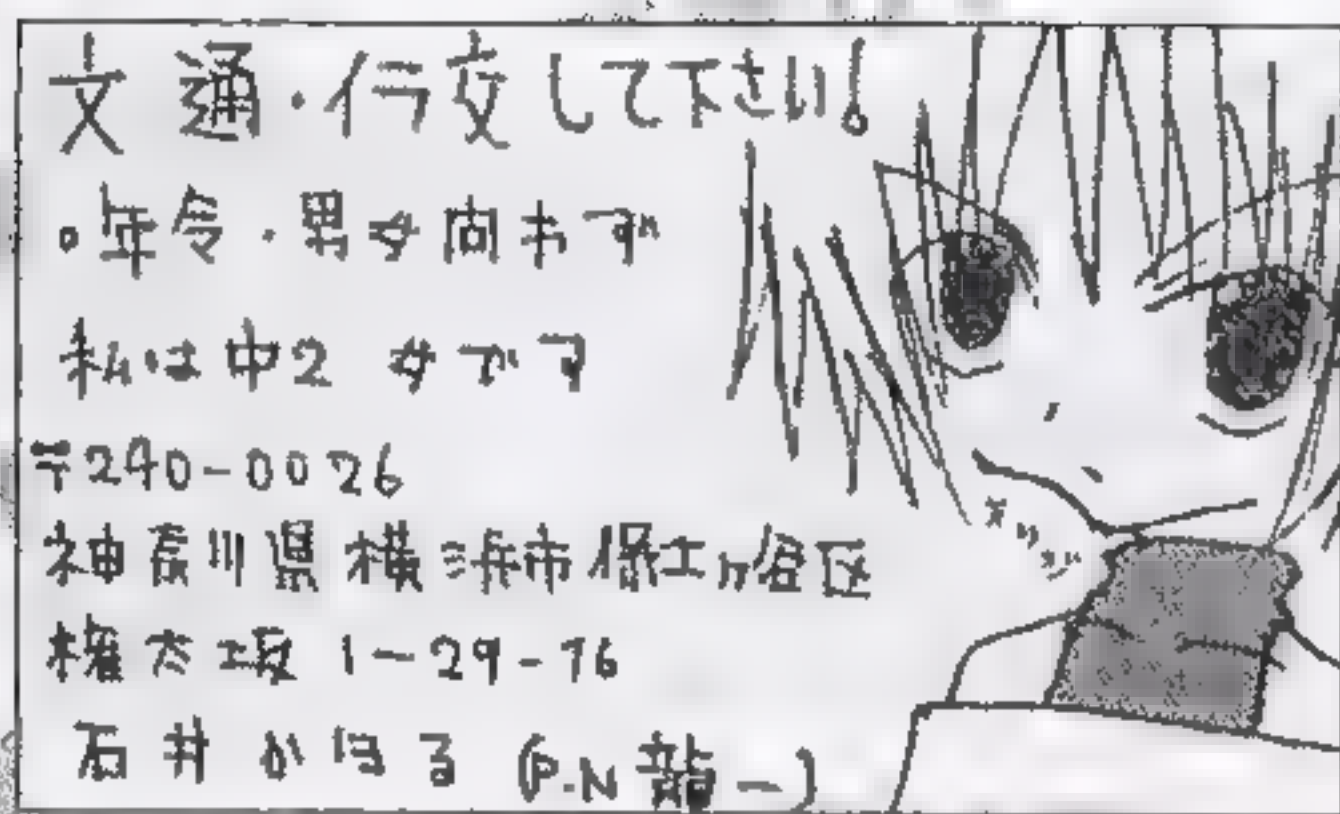 文通・イラ交して下さい!
。年令・男女問わず
私は中2 女です
〒240-0026
神奈川県横浜市保土ヶ谷区
権太坂 1-29-16
石井かほる (P.N 龍一)